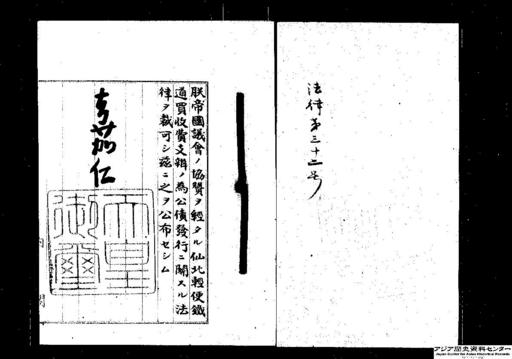 法律第三十二号
朕帝國議會ノ協賛ヲ經タル仙北輕便鐵
道買收費支辨ノ為公債發行ニ關スル法
律ヲ裁可シ茲ニ之ヲ公布セシム
嘉仁
天皇
御璽
アジア歴史資料センター
Japan Center for Asian Historical Records